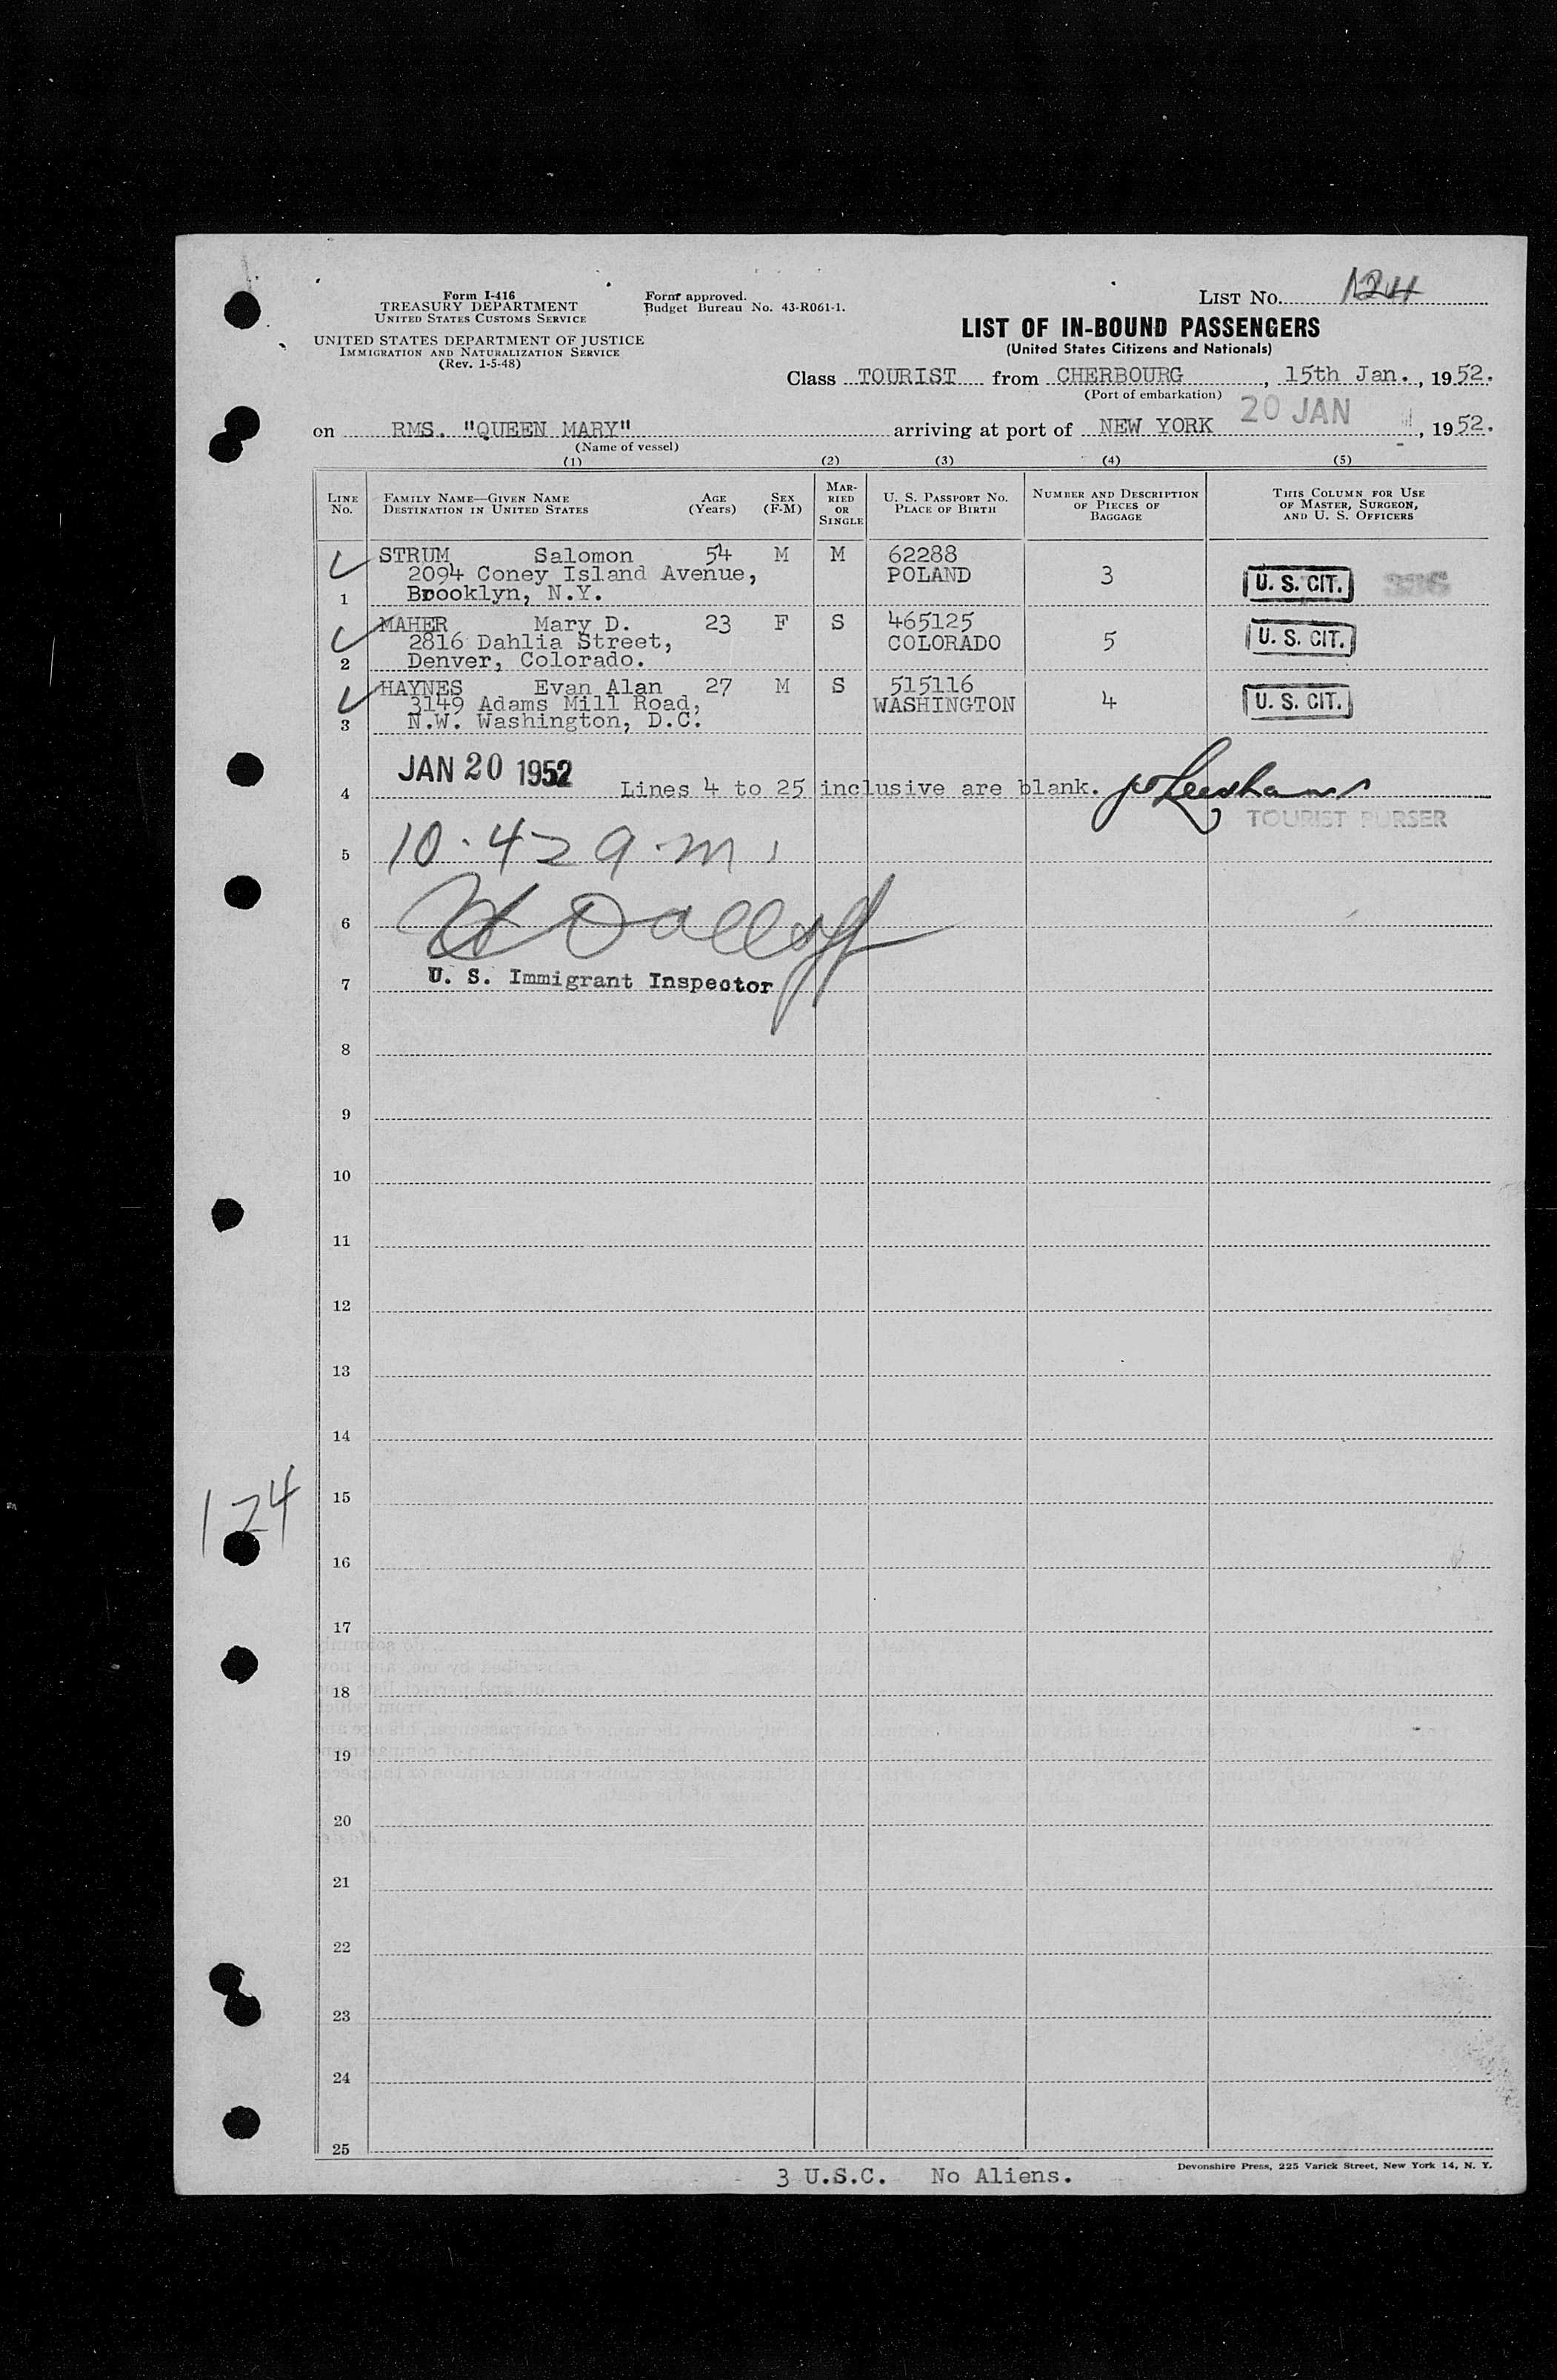 Form I-416
TREASURY DEPARTMENT
UNITED STATES CUSTOMS SERVICE
UNITED STATES DEPARTMENT OF JUSTICE
IMMIGRATION AND NATURALIZATION SERVICE
(Rev. 1-5-48)
Form approved.
Budget Bureau No. 43-R061-1.
LIST No. 124
LIST OF IN-BOUND PASSENGERS
(United States Citizens and Nationals)
Class TOURIST from CHERBOURG, 15th Jan., 1952.
(Port of embarkation)
20 JAN
on RMS. "QUEEN MARY" arriving at port of NEW YORK, 1952.
(Name of vessel)
(1) (2) (3) (4) (5)
LINE No.
FAMILY NAME—GIVEN NAME
DESTINATION IN UNITED STATES
AGE (Years)
SEX (F-M)
MARRIED OR SINGLE
U. S. PASSPORT NO.
PLACE OF BIRTH
NUMBER AND DESCRIPTION OF PIECES OF BAGGAGE
THIS COLUMN FOR USE OF MASTER, SURGEON, AND U. S. OFFICERS
STRUM Salomon 54 M M 62288
2094 Coney Island Avenue, POLAND 3 U. S. CIT.
1 Brooklyn, N.Y.
MAHER Mary D. 23 F S 465125
2816 Dahlia Street, COLORADO 5 U. S. CIT.
2 Denver, Colorado.
HAYNES Evan Alan 27 M S 515116
3149 Adams Mill Road, WASHINGTON 4 U. S. CIT.
3 N.W. Washington, D.C.
JAN 20 1952
4 Lines 4 to 25 inclusive are blank.
TOURIST PURSER
5 10.42 a.m.
6
7 U. S. Immigrant Inspector
8
9
10
11
12
13
14
124
15
16
17
18
19
20
21
22
23
24
25
3 U.S.C. No Aliens.
Devonshire Press, 225 Varick Street, New York 14, N. Y.